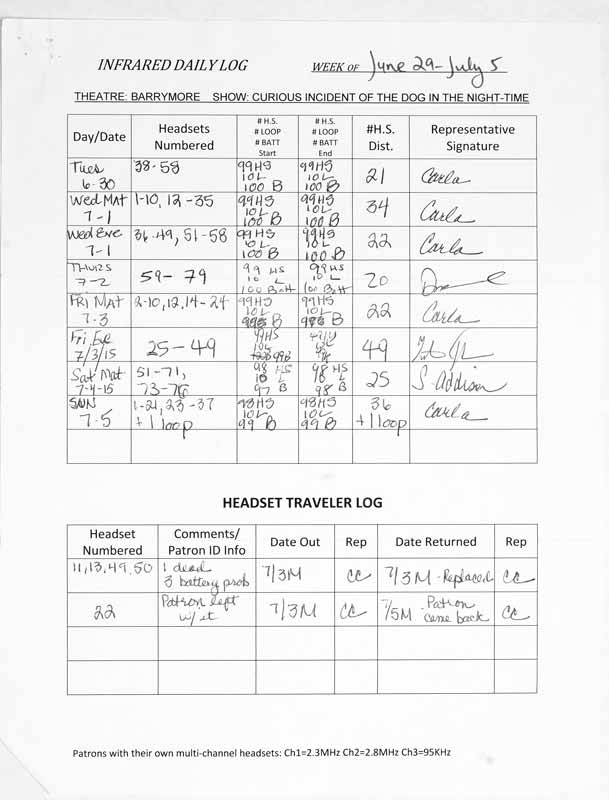 INFRARED DAILY LOG WEEK OF June 29-July 5
THEATRE: BARRYMORE SHOW: CURIOUS INCIDENT OF THE DOG IN THE NIGHT-TIME
Day/Date Headsets Numbered # H.S. # LOOP # BATT Start # H.S. # LOOP # BATT End #H.S. Dist. Representative Signature
Tues 6-30 38-58 99HS 10L 100 B 99HS 10L 100 B 21 Carla
Wed Mat 7-1 1-10, 12-35 99HS 10L 100 B 99HS 10L 100 B 34 Carla
Wed Eve 7-1 36-49, 51-58 99HS 10L 100 B 99HS 10L 100 B 22 Carla
THURS 7-2 59-79 99 HS 10 L 100 Batt 99HS 10 L 100 Batt 20
FRI MAT 7-3 2-10,12,14-24 99HS 10L 99HS 10L 22 Carla
Fri Eve 7/3/15 25-49 99HS 10L 49
Sat Mat 7-4-15 51-71, 73-76 98 HS 10 L 97 B 98 HS 10 L 98 B 25 S. Addison
SUN 7-5 1-21, 23-37 +1 loop 98HS 10L 99 B 98HS 10L 99 B 36 +1 loop Carla
HEADSET TRAVELER LOG
Headset Numbered Comments/ Patron ID Info Date Out Rep Date Returned Rep
11,13,49,50 1 dead 3 battery prob 7/3M CC 7/3M - Replaced CC
22 Patron left w/it 7/3M CC 7/5M - Patron came back CC
Patrons with their own multi-channel headsets: Ch1=2.3MHz Ch2=2.8MHz Ch3=95KHz